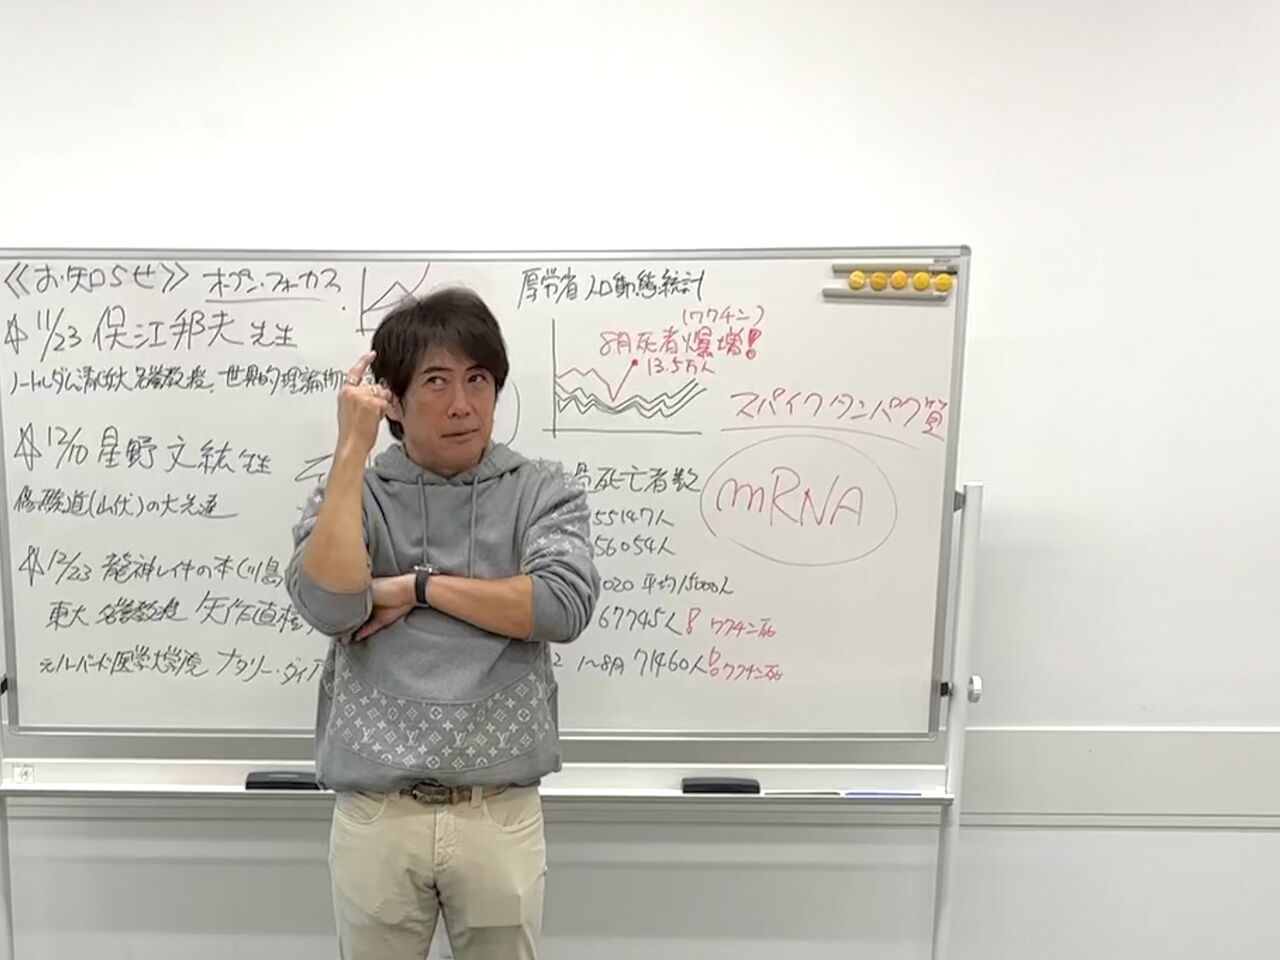 《お知らせ》 オープン・フォーカス
11/23 保江邦夫先生
ノートルダム清心女大名誉教授、世界的理論物
12/10 星野文紘先生
修験道(山伏)の大先達
12/23 龍神レイキの本(川島
東大名誉教授 矢作直樹
元ハーバード医学大学院 ナタリー・ダイア
厚労省人口動態統計
(ワクチン)
8月死者爆増!
13.5万人
スパイクタンパク質
mRNA
死亡者数
55147人
56054人
020 平均15000人
67745人! ワクチン死
2 1〜8月 71460人! ワクチン死